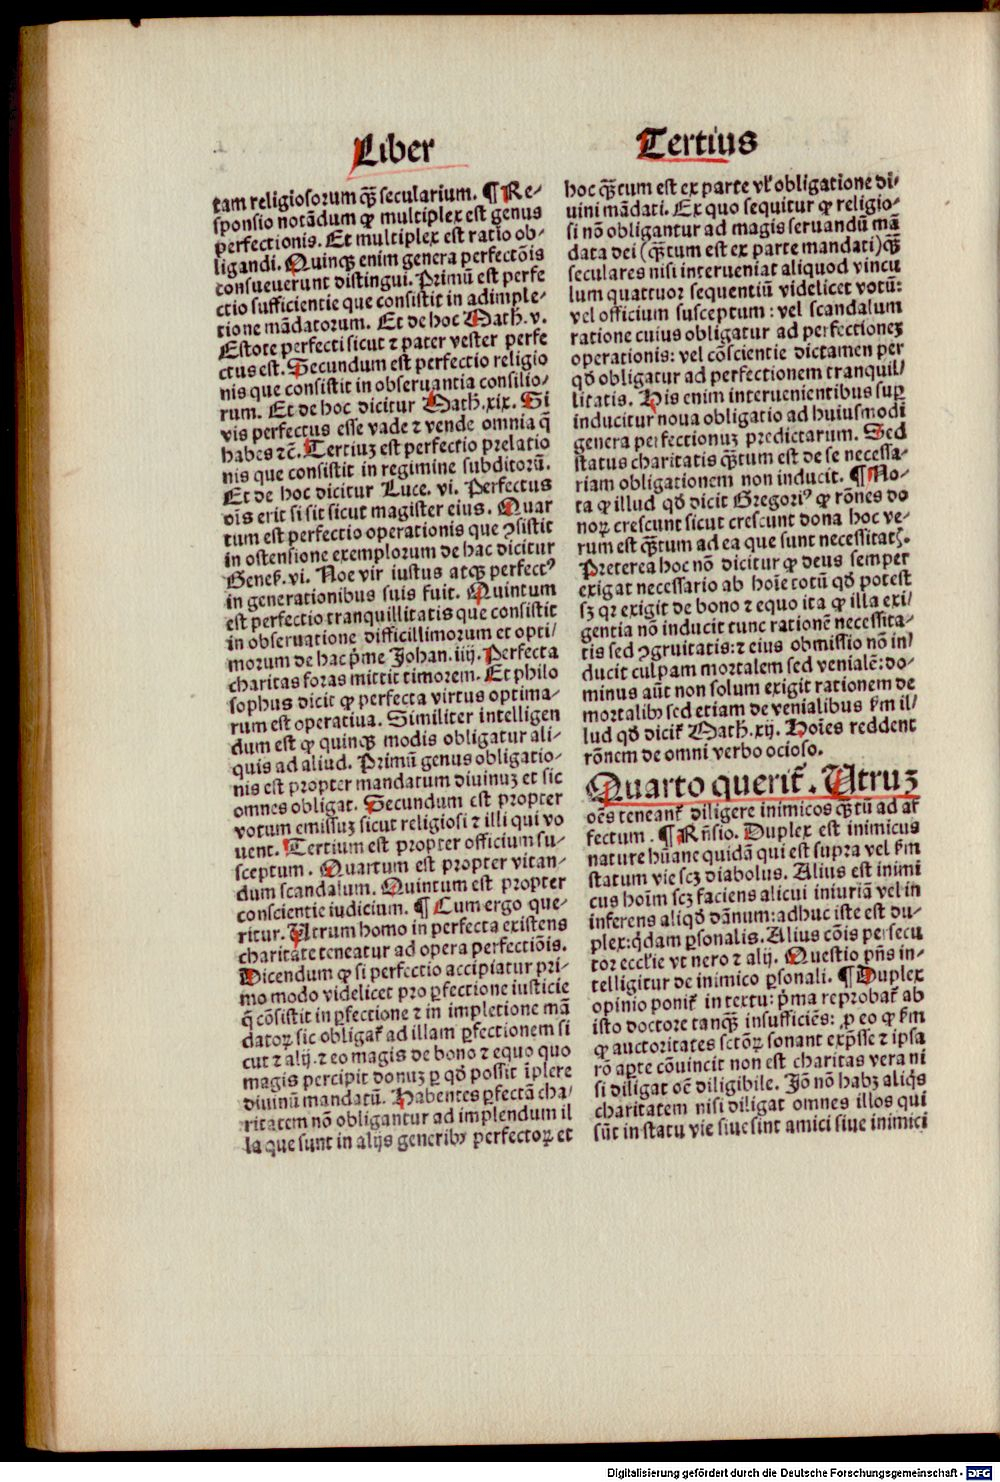 Liber
Tertius
tam religiosorum qʒ̄ secularium. ¶ Re-
sponsio notādum ꝙ multiplex est genus
perfectionis. Et multiplex est ratio ob-
ligandi. Quinqʒ enim genera perfectōis
consueuerunt distingui. Primū est perfe
ctio sufficientie que consistit in adimple-
tione mādatorum. Et de hoc Math. v.
Estote perfecti sicut ⁊ pater vester perfe
ctus est. Secundum est perfectio religio
nis que consistit in obseruantia consilio-
rum. Et de hoc dicitur Math. xix. Si
vis perfectus esse vade ⁊ vende omnia q̄
habes ⁊c̄. Tertiuʒ est perfectio prelatio
nis que consistit in regimine subditorū.
Et de hoc dicitur Luce. vi. Perfectus
oīs erit si sit sicut magister eius. Quar
tum est perfectio operationis que ꝯsistit
in ostensione exemplorum de hac dicitur
Geneẜ. vi. Noe vir iustus atqʒ perfectꝰ
in generationibus suis fuit. Quintum
est perfectio tranquillitatis que consistit
in obseruatione difficillimorum et opti-
morum de hac p̄me Johan. iiij. Perfecta
charitas foras mittit timorem. Et philo
sophus dicit ꝙ perfecta virtus optima-
rum est operatiua. Similiter intelligen
dum est ꝙ quinqʒ modis obligatur ali-
quis ad aliud. Primū genus obligatio-
nis est propter mandatum diuinuʒ et sic
omnes obligat. Secundum est propter
votum emissuʒ sicut religiosi ⁊ illi qui vo
uent. Tertium est propter officium su-
sceptum. Quartum est propter vitan-
dum scandalum. Quintum est propter
conscientie iudicium. ¶ Cum ergo que-
ritur. Utrum homo in perfecta existens
charitate teneatur ad opera perfectiōis.
Dicendum ꝙ si perfectio accipiatur pri-
mo modo videlicet pro ꝑfectione iusticie
q̄ cōsistit in ꝑfectione ⁊ in impletione mā
datoꝝ sic obligat᷑ ad illam ꝑfectionem si
cut ⁊ alij. ⁊ eo magis de bono ⁊ equo quo
magis percipit donuʒ ꝑ qd̄ possit īplere
diuinū mandatū. Habentes ꝑfectā cha-
ritatem nō obligantur ad implendum il
la que sunt in alijs generibꝰ perfectoꝝ et
hoc qʒ̄tum est ex parte vł obligatione di-
uini mādati. Ex quo sequitur ꝙ religio-
si nō obligantur ad magis seruandū mā
data dei (qʒ̄tum est ex parte mandati) qʒ̄
seculares nisi interueniat aliquod vincu
lum quattuor sequentiū videlicet votū:
vel officium susceptum: vel scandalum
ratione cuius obligatur ad perfectioneʒ
operationis: vel cōscientie dictamen per
qd̄ obligatur ad perfectionem tranquil-
litatis. His enim interuenientibus suꝑ
inducitur noua obligatio ad huiusmodi
genera perfectionuʒ predictarum. Sed
status charitatis qʒ̄tum est de se necessa-
riam obligationem non inducit. ¶ No-
ta ꝙ illud qd̄ dicit Gregoriꝰ ꝙ rōnes do
noꝝ crescunt sicut crescunt dona hoc ve-
rum est qʒ̄tum ad ea que sunt necessitatꝭ.
Preterea hoc nō dicitur ꝙ deus semper
exigat necessario ab hoīe totū qd̄ potest
sʒ qꝛ exigit de bono ⁊ equo ita ꝙ illa exi-
gentia nō inducit tunc rationē necessita-
tis sed ꝯgruitatis: ⁊ eius obmissio nō in-
ducit culpam mortalem sed venialē: do-
minus aūt non solum exigit rationem de
mortalibꝰ sed etiam de venialibus ẜm il-
lud qd̄ dicit᷑ Math. xij. Hoīes reddent
rōnem de omni verbo ocioso.
Quarto querit᷑. Utruʒ
oēs teneant᷑ diligere inimicos qʒ̄tū ad af
fectum. ¶ Rn̄sio. Duplex est inimicus
nature hūane quidā qui est supra vel ẜm
statum vie scʒ diabolus. Alius est inimi
cus hoīm scʒ faciens alicui iniuriā vel in
inferens aliqd̄ dānum: adhuc iste est du-
plex: q̇dam ꝑsonalis. Alius cōis persecu
tor eccłie vt nero ⁊ alij. Questio pn̄s in-
telligitur de inimico ꝑsonali. ¶ Duplex
opinio ponit᷑ in textu: p̄ma reprobat᷑ ab
isto doctore tanqʒ̄ insufficiēs: ꝓ eo ꝙ ẜm
ꝙ auctoritates sctōꝝ sonant exp̄sse ⁊ ipsa
rō aꝑte cōuincit non est charitas vera ni
si diligat oē diligibile. Jō nō habʒ aliq̇s
charitatem nisi diligat omnes illos qui
sūt in statu vie siue sint amici siue inimici
Digitalisierung gefördert durch die Deutsche Forschungsgemeinschaft - DFG